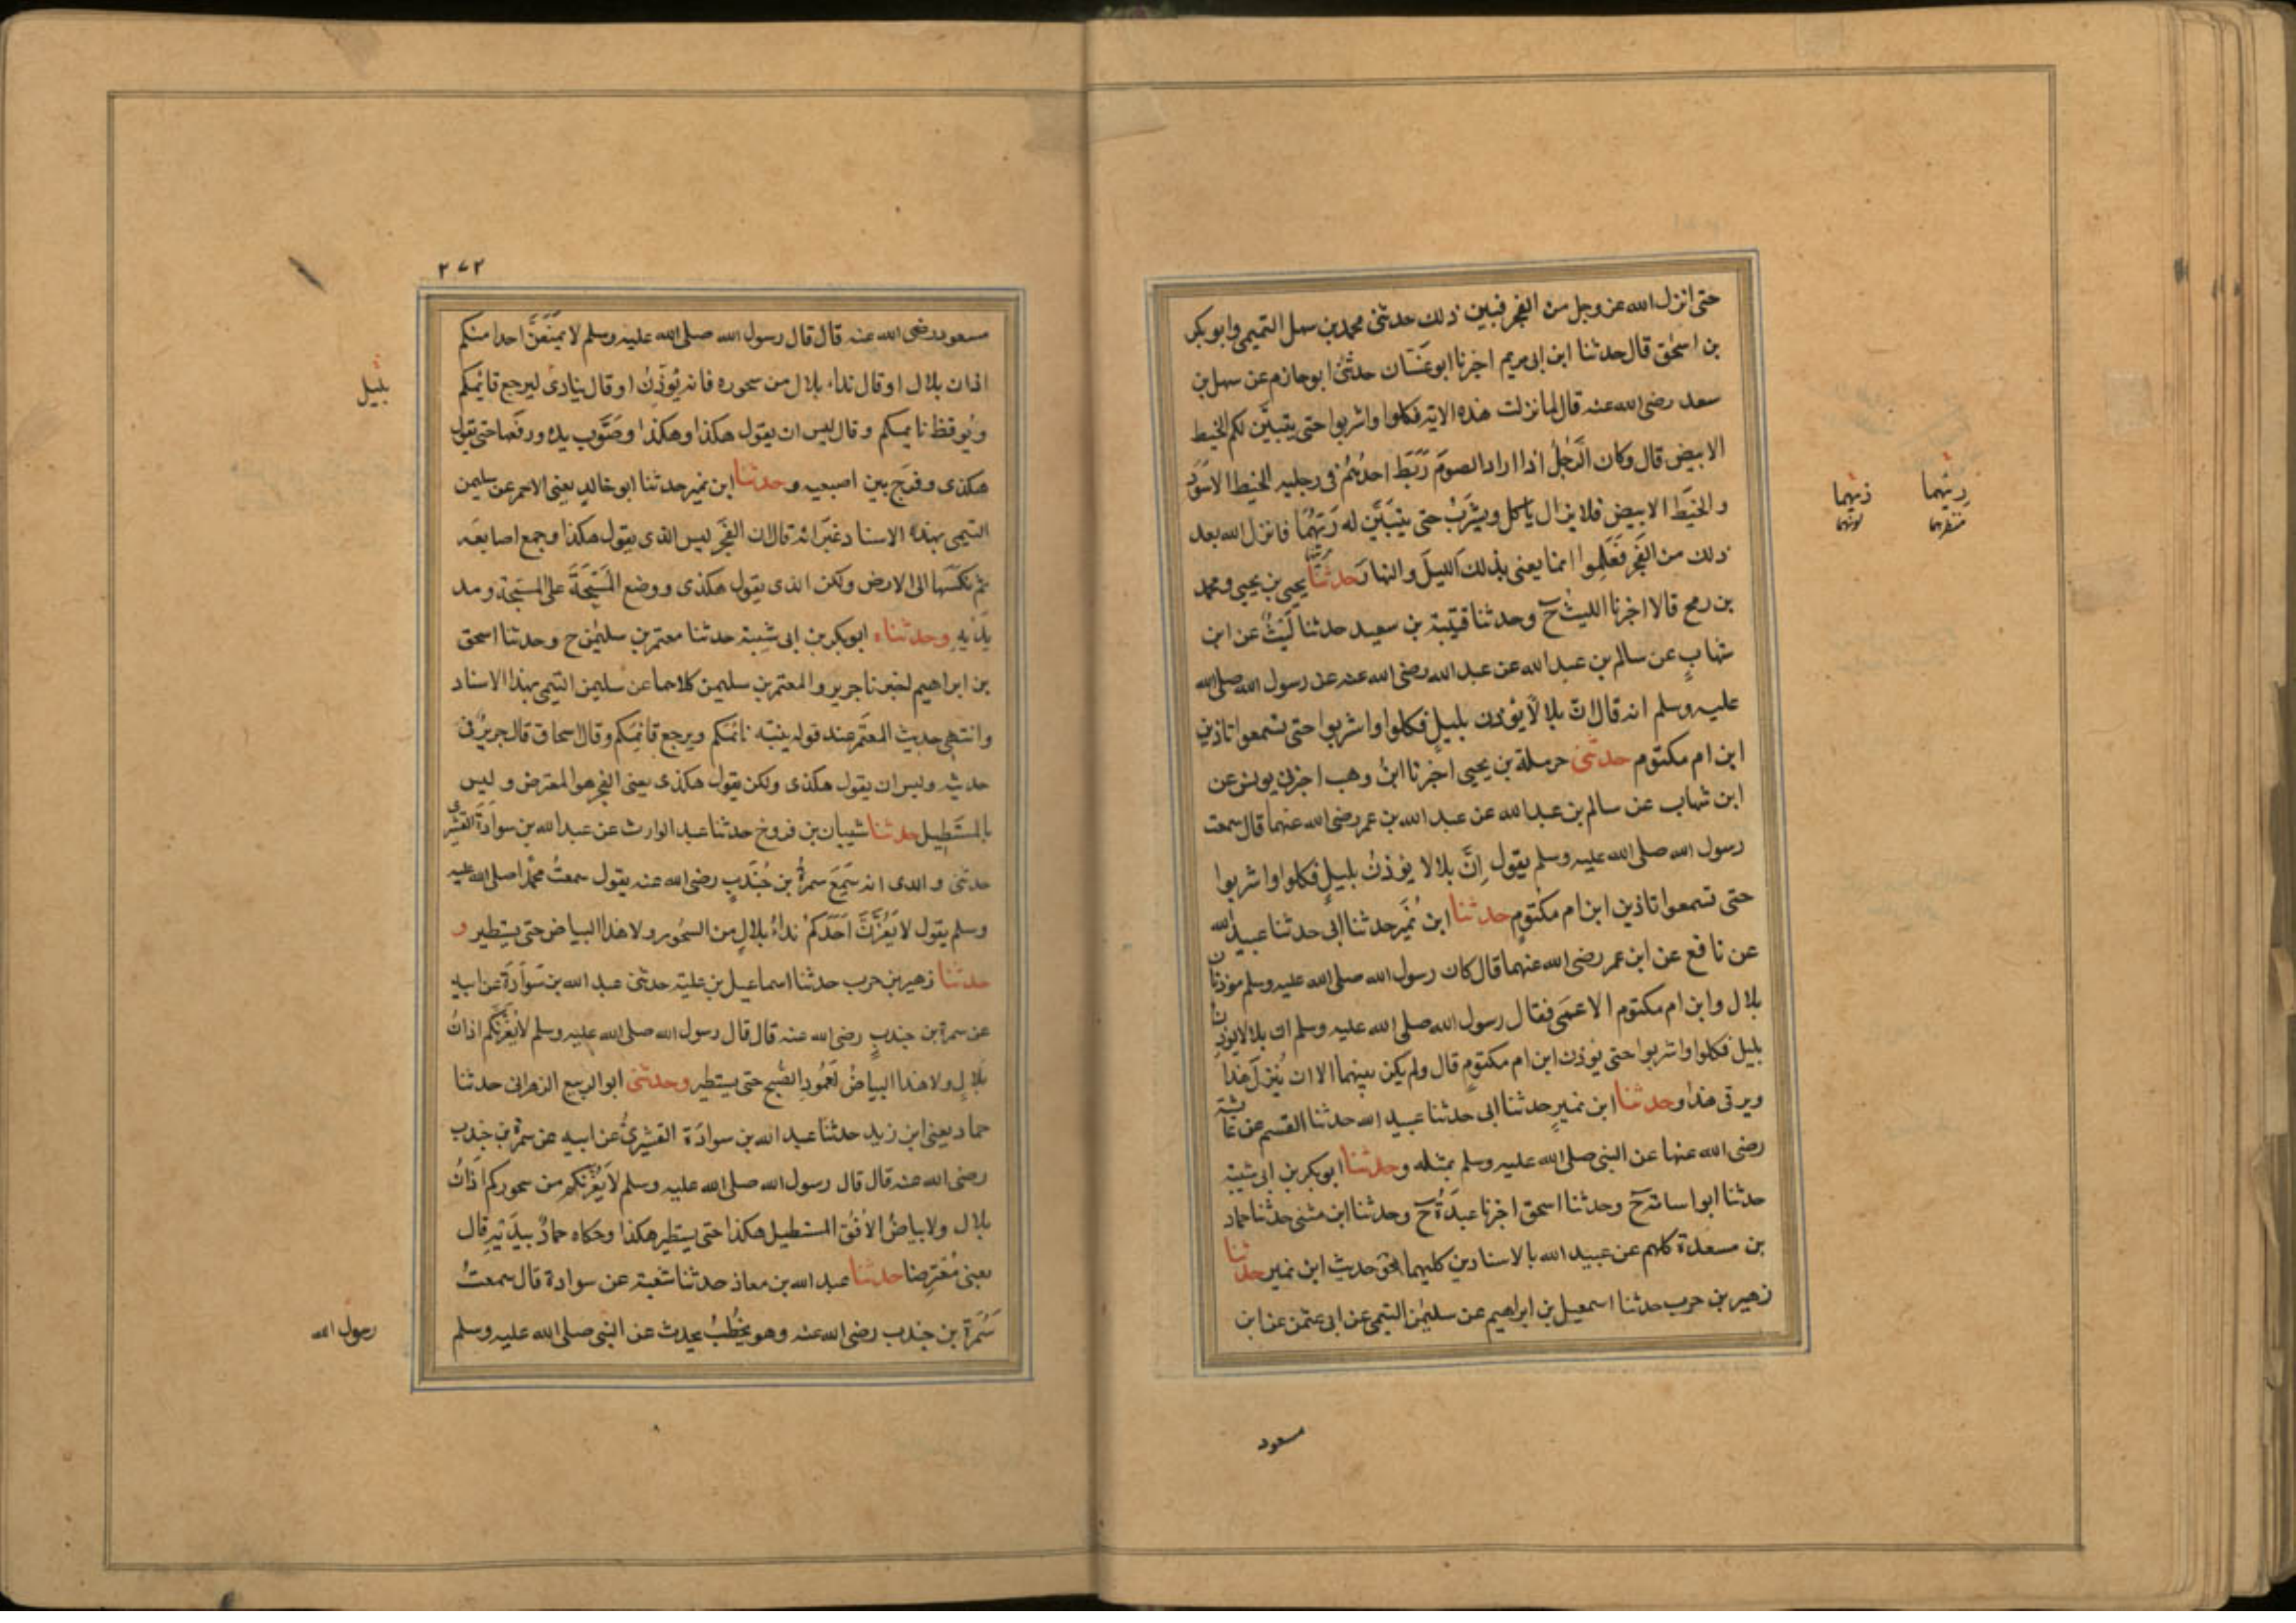 حتى انزل الله عز وجل من الفجر فبين ذلك حدثنى محمد بن سهل التميمى وابو بكر
بن اسحٰق قال حدثنا ابن ابى مريم اخبرنا ابو غسّان حدثنى ابو حازم عن سهل بن
سعد رضى الله عنه قال لما نزلت هذه الاية فكلوا واشربوا حتى يتبيّن لكم الخيط
الابيض قال وكان الرّجلُ اذا اراد الصومَ رَبَطَ احدُهُم فى رجليه الخيط الاسوَد
والخيَط الابيض فلا يزال ياكل ويشربُ حتى يتبيّن له رِئيُهُما فانزل الله بعد
ذلك من الفجر فَعَلِموا انما يعنى بذلك الليلَ والنهارَ حدثنا يحيى بن يحيى ومحمد
بن رمح قالا اخبرنا الليثُ ح وحدثنا قتيبة بن سعيد حدثنا ليثٌ عن ابن
شهابٍ عن سالم بن عبد الله عن عبد الله رضى الله عنه عن رسول الله صلى الله
عليه وسلم انه قال انّ بلالاً يؤذن بليلٍ فكلوا واشربوا حتى تسمعوا تاذين
ابن ام مكتوم حدثنى حرملة بن يحيى اخبرنا ابنُ وهب اخبرنى يونس عن
ابن شهاب عن سالم بن عبد الله عن عبد الله بن عمر رضى الله عنهما قال سمعت
رسول الله صلى الله عليه وسلم يقول اِنّ بلالا يؤذنُ بليلٍ فكلوا واشربوا
حتى تسمعوا تاذين ابن ام مكتومٍ حدثنا ابن نُمَير حدثنا ابى حدثنا عبيد الله
عن نافع عن ابن عمر رضى الله عنهما قال كان رسول الله صلى الله عليه وسلم موذنان
بلال وابن ام مكتوم الاعمَى فقال رسول الله صلى الله عليه وسلم ان بلالا يؤذن
بليل فكلوا واشربوا حتى يؤذن ابن ام مكتومٍ قال ولم يكن بينهما الا ان يُنزلَ هذا
ويرقى هذا وحدثنا ابن نميرٍ حدثنا ابى حدثنا عبيد الله حدثنا القسم عن عائشة
رضى الله عنها عن النبى صلى الله عليه وسلم بمثله وحدثنا ابو بكر بن ابى شيبة
حدثنا ابو اسامة ح وحدثنا اسحق اخبرنا عبدَةُ ح وحدثنا ابن مثنى حدثنا حماد
بن مسعدة كلهم عن عبيد الله بالاسنادين كليهما نحو حديث ابن نمير حدثنا
زهير بن حرب حدثنا اسمعيل بن ابراهيم عن سليمٰن التيمى عن ابى عثمن عن ابن
مسعود
٢٧٢
مسعود رضى الله عنه قال قال رسول الله صلى الله عليه وسلم لا يمنَعَنَّ احدا منكم
اذان بلال او قال نداء بلال من سحوره فانه يُؤذِنُ او قال ينادى ليرجع قائمكم
بليل
ويُوقظ نائمكم وقال ليس ان يقول هكذا وهكذا وصَوَّب يده ورفعها حتى يقول
هكذى وفرّج بين اصبعيه وحدثنا ابن نمير حدثنا ابو خالدٍ يعنى الاحمر عن سليمن
التيمى بهذا الاسناد غيرَ انه قال ان الفجَر ليس الذى يقول هكذا وجمع اصابعَه
ثم نكسَها الى الارض ولكن الذى يقول هكذى ووضع المُسَبّحةَ على المسبّحة ومد
يَدَيهِ وحدثناه ابو بكر بن ابى شيبة حدثنا معتمر بن سليمٰن ح وحدثنا اسحق
بن ابراهيم اخبرنا جرير والمعتمر بن سليمن كلاهما عن سليمن التيمى بهذا الاسناد
وانتهى حديث المعتَمر عند قوله ينبّه نائمَكم ويرجع قائمَكم وقال اسحاق قال جريرٌ فى
حديثه وليس ان يقول هكذى ولكن يقول هكذى يعنى الفجر هو المعترض وليس
بالمستَطِيل حدثنا شيبان بن فروخ حدثنا عبد الوارث عن عبد الله بن سوادَةَ القشيرى
حدثنى والدى انه سَمِعَ سمرةُ بن جُندَبٍ رضى الله عنه يقول سمعتُ محمدًا صلى الله عليه
وسلم يقول لا يَغُرَّنَّ اَحَدَكُم نداءُ بلالٍ من السحُور ولا هذا البياض حتى يستطير و
حدثنا زهير بن حرب حدثنا اسماعيل بن علية حدثنى عبد الله بن سَوَادَةَ عن ابيه
عن سمرة بن جندبٍ رضى الله عنه قال قال رسول الله صلى الله عليه وسلم لا يَغُرَّنَّكُم اذانُ
بلالٍ ولا هذا البياضُ لعَمُودِ الصُّبح حتى يستطير وحدثنى ابو الربيع الزهرانى حدثنا
حماد يعنى ابن زيد حدثنا عبد الله بن سوادَة القشيرىُّ عن ابيه عن سمرة بن جندب
رضى الله عنه قال قال رسول الله صلى الله عليه وسلم لا يَغُرَّنَّكم من سحوركم اَذانُ
بلال ولا بياضُ الاُفُق المستطيل هكذا حتى يستطير هكذا وحكاه حمادٌ بيدَيهِ قال
يعنى مُعْتَرِضا حدثنا عبد الله بن معاذ حدثنا شعبة عن سوادة قال سمعتُ
سَمُرَة بن جندب رضى الله عنه وهو يخُطبُ يحدث عن النبى صلى الله عليه وسلم
رسول الله